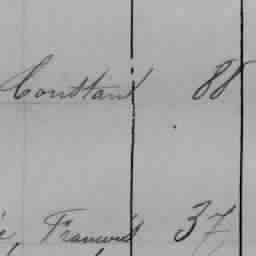 Constant 88
e, Francois 37